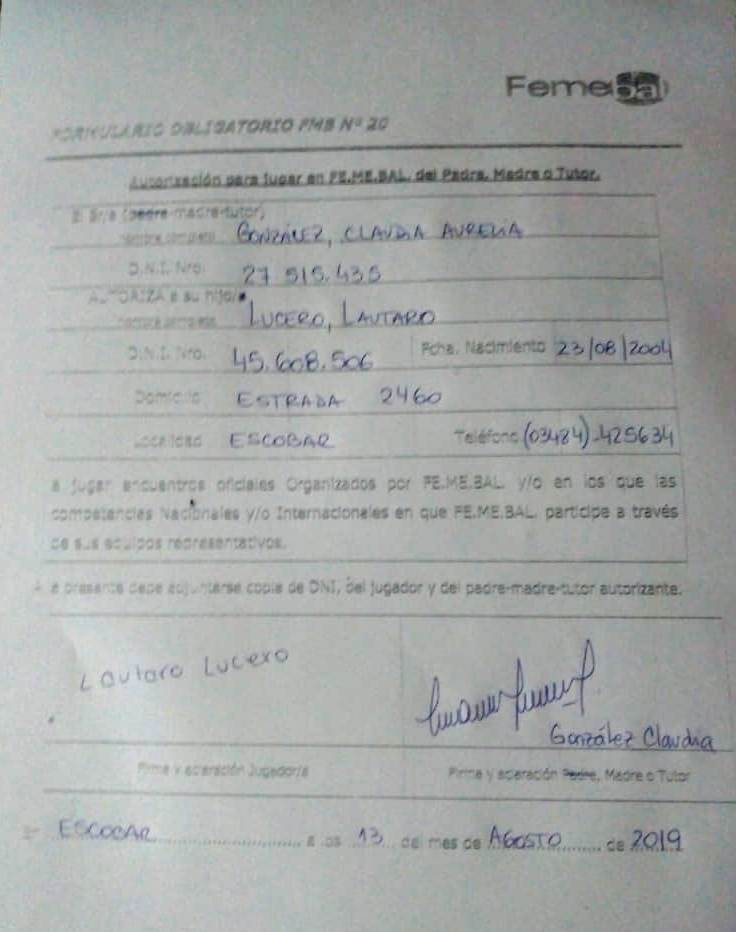 Femebal
FORMULARIO OBLIGATORIO FMB Nº 20
Autorización para jugar en FE.ME.BAL. del Padre, Madre o Tutor.
El Sr/a (padre-madre-tutor)
nombre completo GONZÁLEZ, CLAUDIA AURELIA
D.N.I. Nro. 27 515.435
AUTORIZA a su hijo/a
nombre completo LUCERO, LAUTARO
D.N.I. Nro. 45.608.506 Fcha. Nacimiento 23/08/2004
Domicilio ESTRADA 2460
Localidad ESCOBAR Teléfono (03484)-425634
a jugar encuentros oficiales Organizados por FE.ME.BAL. y/o en los que las
competencias Nacionales y/o Internacionales en que FE.ME.BAL. participe a través
de sus equipos representativos.
A la presente debe adjuntarse copia de DNI, del jugador y del padre-madre-tutor autorizante.
Lautaro Lucero
González Claudia
Firma y aclaración Jugador/a Firma y aclaración Padre, Madre o Tutor
ESCOBAR a los 13 del mes de AGOSTO de 2019